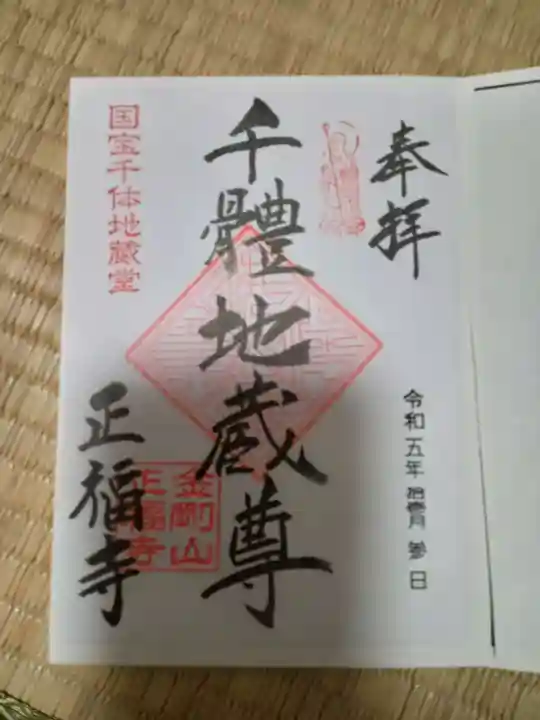 奉拝
令和五年拾壱月参日
千體地蔵尊
国宝千体地蔵堂
正福寺
金剛山
正福寺